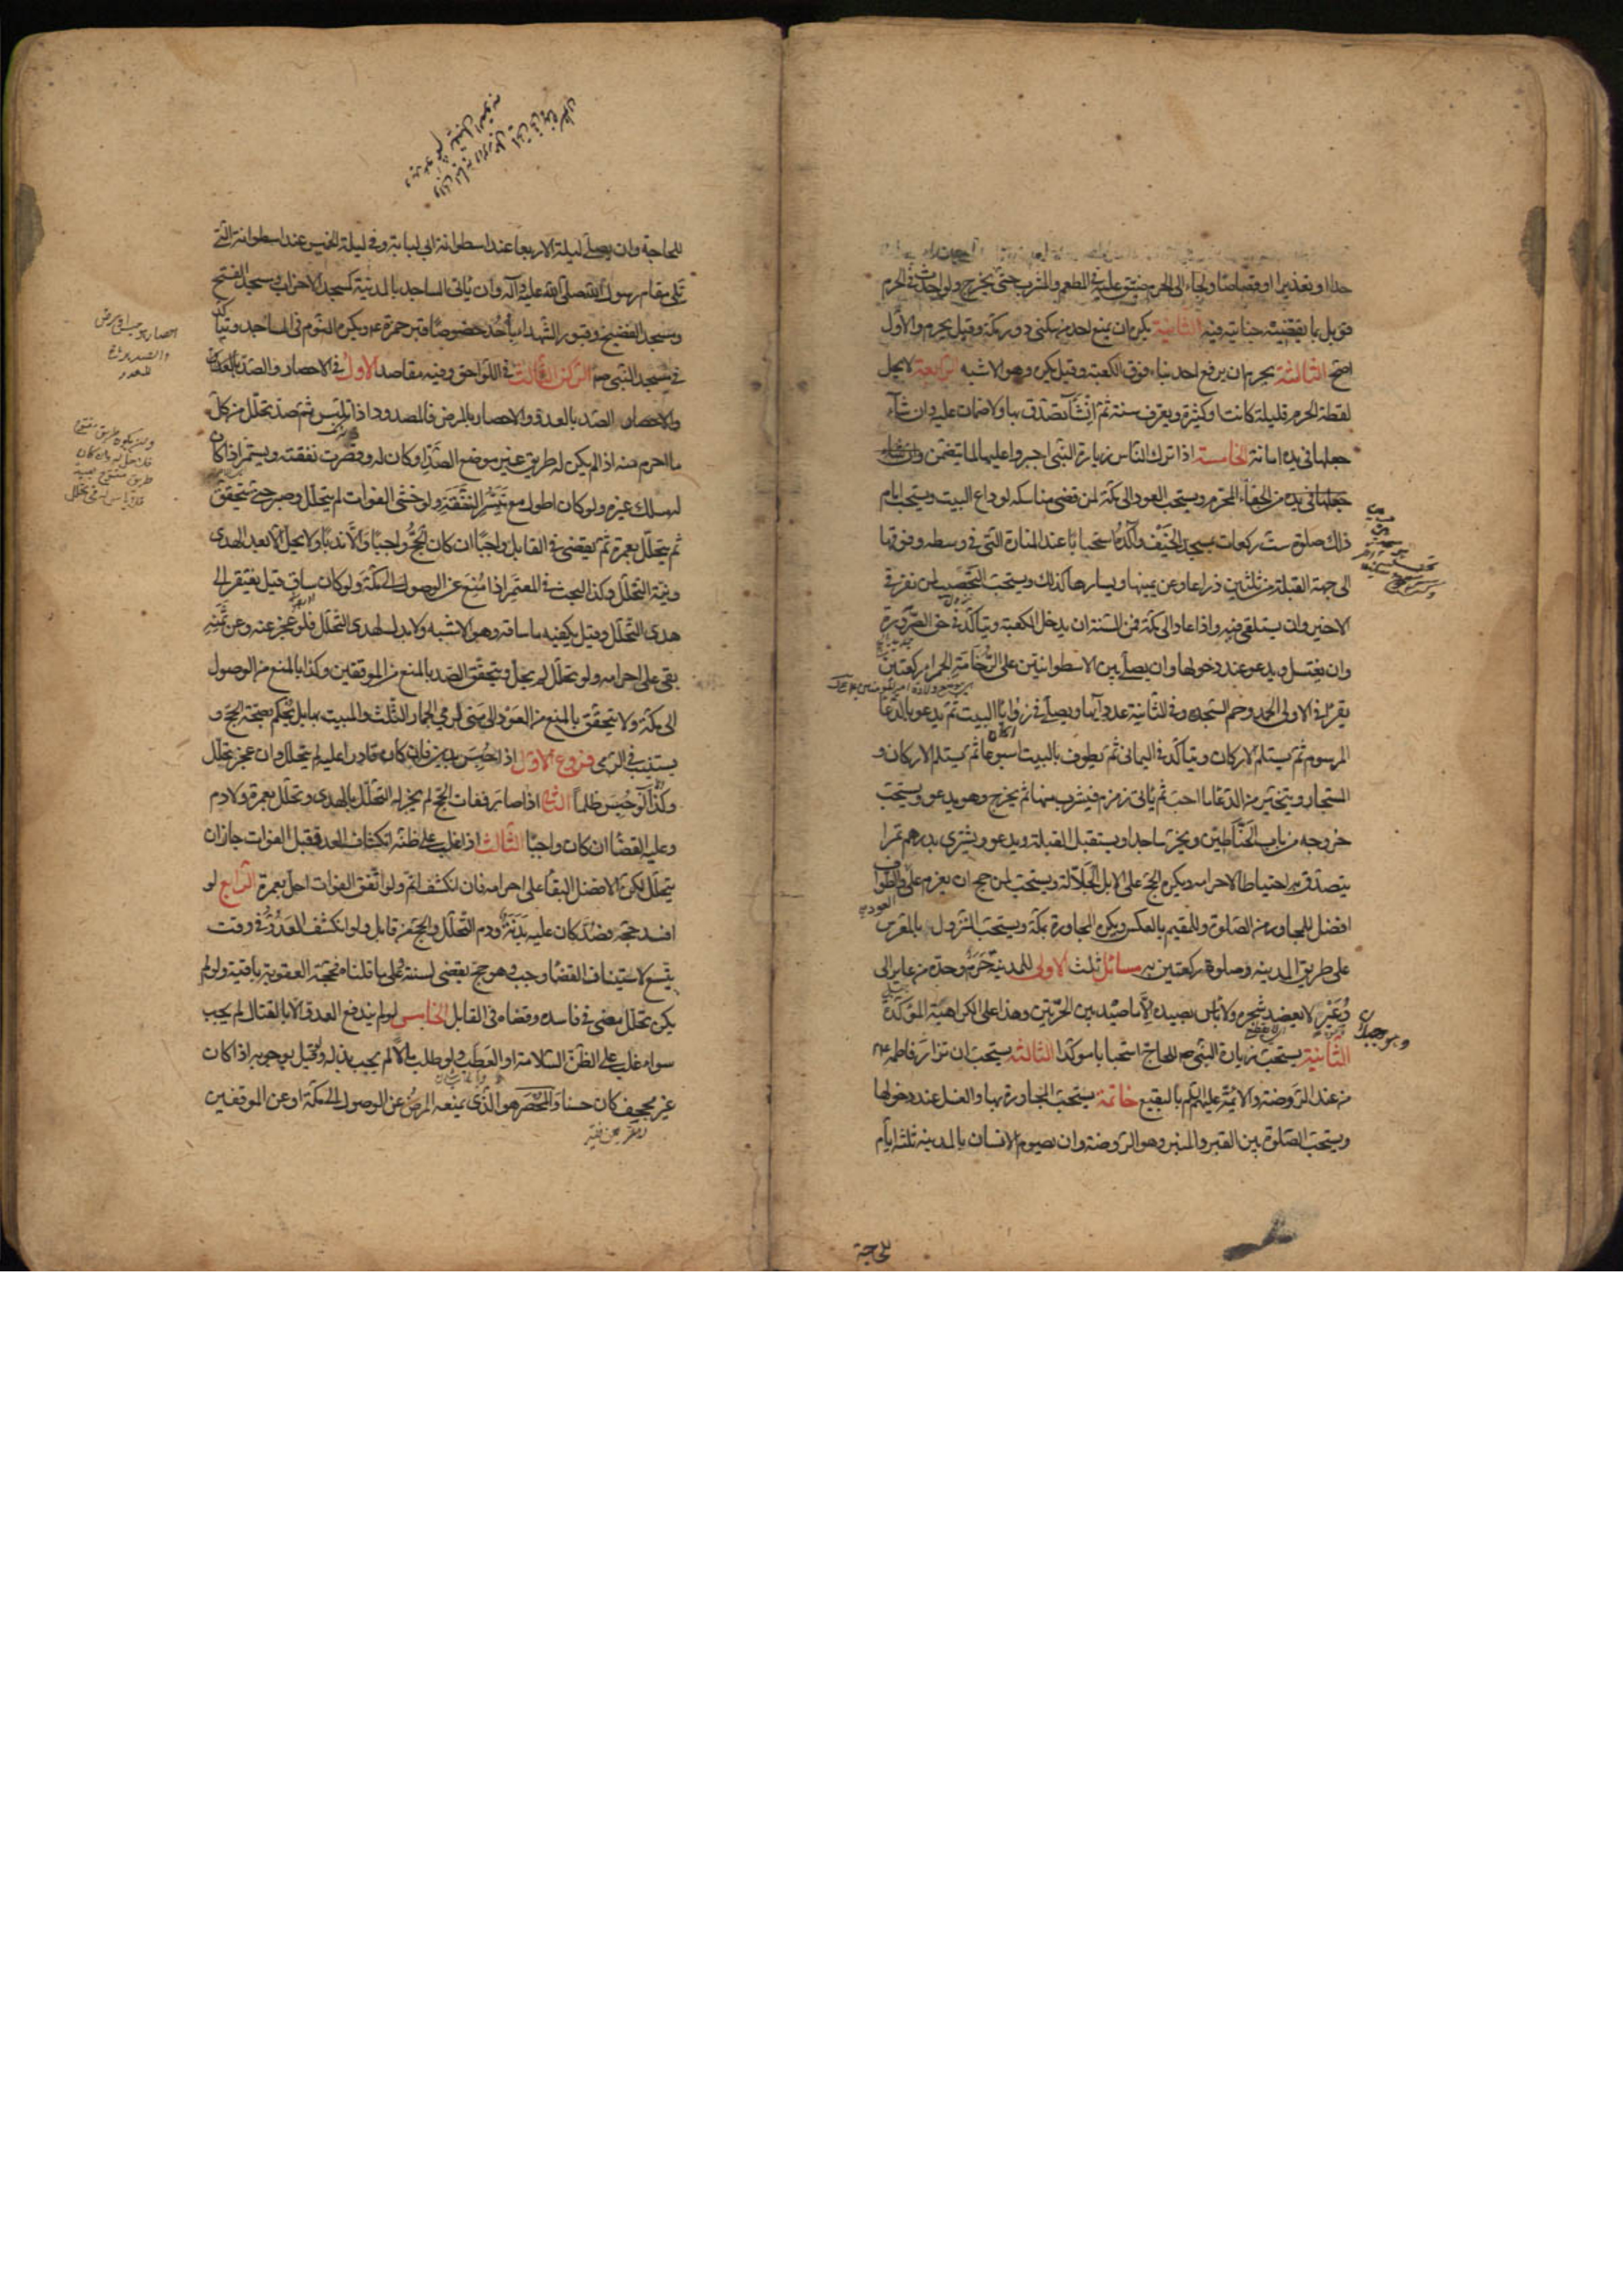 حدا او تعزيرا او قصاصا ولجاء الى الحرم ضيق عليه في المطعم والمشرب حتى يخرج ولو احدث في الحرم
قوبل بما يقتضيه جنايته فيه الثانية يكره ان يمنع احد من سكنى دور مكة وقيل يحرم والاول
اصح الثالثة يحرم ان يرفع احد بناء فوق الكعبة وقيل يكره وهو الاشبه الرابعة لا يحل
لقطة الحرم قليلة كانت او كثيرة ويعرف سنة ثم ان شآء تصدق بها ولا ضمان عليه وان شآء
جعلها في يده امانة الخامسة اذا ترك الناس زيارة النبي اجبروا عليها لما يتضمن وان شاء
جعلها في يده من الجفاء المحرم ويستحب العود الى مكة لمن قضى مناسكه لوداع البيت ويستحب امام
ذلك صلوة ست ركعات بمسجد الخيف وآكده استحبابا عند المنارة التي في وسطه وفوقها
الى جهة القبلة من ثلثين ذراعا وعن يمينها ويسارها كذلك ويستحب التحصيب لمن نفر في
الاخير وان يستلقي فيه واذا عاد الى مكة فمن السنة ان يدخل الكعبة ويتأكد في حق الصرورة
وان يغتسل ويدعو عند دخولها وان يصلي بين الاسطوانتين على الرخامة الحمراء ركعتين
يقرأ في الاولى الحمد وحم السجدة وفي الثانية عدد آيها ويصلي في زوايا البيت ثم يدعو بالدعا
المرسوم ثم يستلم الاركان ويتأكد في اليماني ثم يطوف بالبيت اسبوعا ثم يستلم الاركان و
المستجار ويتخير من الدعا ما احب ثم يأتي زمزم فيشرب منها ثم يخرج وهو يدعو ويستحب
خروجه من باب الحناطين ويخر ساجدا ويستقبل القبلة ويدعو ويشتري بدرهم تمرا
يتصدق به احتياطا لاحرامه ويكره الحج على الابل الجلالة ويستحب لمن حج ان يعزم على العود والطواف
افضل للمجاور من الصلوة وللمقيم بالعكس ويكره المجاورة بمكة ويستحب النزول بالمعرس
على طريق المدينة وصلوة ركعتين به مسائل ثلث الاولى للمدينة حرم وحده من عاير الى
وعير لا يعضد شجره ولا باس بصيده الا ما صيد بين الحرتين وهذا على الكراهية المؤكدة
الثانية يستحب زيارة النبي ص للحاج استحبابا موكدا الثالثة يستحب ان تزار فاطمة ع
من عند الروضة والائمة عليهم السلم بالبقيع خاتمة يستحب المجاورة بها والغسل عند دخولها
ويستحب الصلوة بين القبر والمنبر وهو الروضة وان يصوم الانسان بالمدينة ثلثة ايام
للحاجة
للحاجة وان يصلي ليلة الاربعا عند اسطوانة ابي لبابة وفي ليلة الخميس عند اسطوانة التي
تلي مقام رسول الله صلى الله عليه وآله وان يأتي المساجد بالمدينة كمسجد الاحزاب ومسجد الفتح
ومسجد الفضيخ وقبور الشهدا بأحد خصوصا قبر حمزة ع ويكره النوم في المساجد ويتأكد
في مسجد النبي ص الركن الثالث في اللواحق وفيه مقاصد الاول في الاحصار والصد
والاحصار الصد بالعدو والاحصار بالمرض فالمصدود اذا تلبس ثم صد تحلل من كل
ما احرم منه اذا لم يكن له طريق غير موضع الصد او كان له وقصرت نفقته ويستمر اذا كان
له مسلك غيره ولو كان اطول مع تيسر النفقة ولو خشى الفوات لم يتحلل وصبر حتى يتحقق
ثم يتحلل بعمرة ثم يقضي في القابل واجبا ان كان الحج واجبا والا ندبا ولا يحل الا بعد الهدى
ونية التحلل وكذا البحث في المعتمر اذا منع عن الوصول الى مكة ولو كان ساق قيل يفتقر الى
هدى التحلل وقيل يكفيه ما ساقه وهو الاشبه ولا بدل لهدى التحلل فلو عجز عنه وعن ثمنه
بقى على احرامه ولو تحلل لم يحل ويتحقق الصد بالمنع من الموقفين وكذا بالمنع من الوصول
الى مكة ولا يتحقق بالمنع من العود الى منى لرمي الجمار الثلث والمبيت بها بل يحكم بصحة الحج و
يستنيب في الرمي فروع الاول اذا حبس بدين فان كان قادرا عليه لم يتحلل وان عجز تحلل
وكذا لو حبس ظلما الثاني اذا صابر ففات الحج لم يجز له التحلل بالهدى وتحلل بعمرة ولا دم
وعليه القضا ان كان واجبا الثالث اذا غلب على ظنه انكشاف العدو قبل الفوات جاز ان
يتحلل لكن الافضل البقا على احرامه فان انكشف اتم ولو اتفق الفوات احل بعمرة الرابع لو
افسد حجه فصد كان عليه بدنة ودم التحلل والحج من قابل ولو انكشف العدو في وقت
يتسع لاستيناف القضا وجب وهو حج يقضى لسنته وعلى ما قلناه فحجة العقوبة باقية ولو لم
يكن تحلل مضى في فاسده وقضاه في القابل الخامس لو لم يندفع العدو الا بالقتال لم يجب
سواء غلب على الظن السلامة او العطب ولو طلب مالا لم يجب بذله ولو قيل بوجوبه اذا كان
غير مجحف كان حسنا والمحصر هو الذي يمنعه المرض عن الوصول الى مكة او عن الموقفين